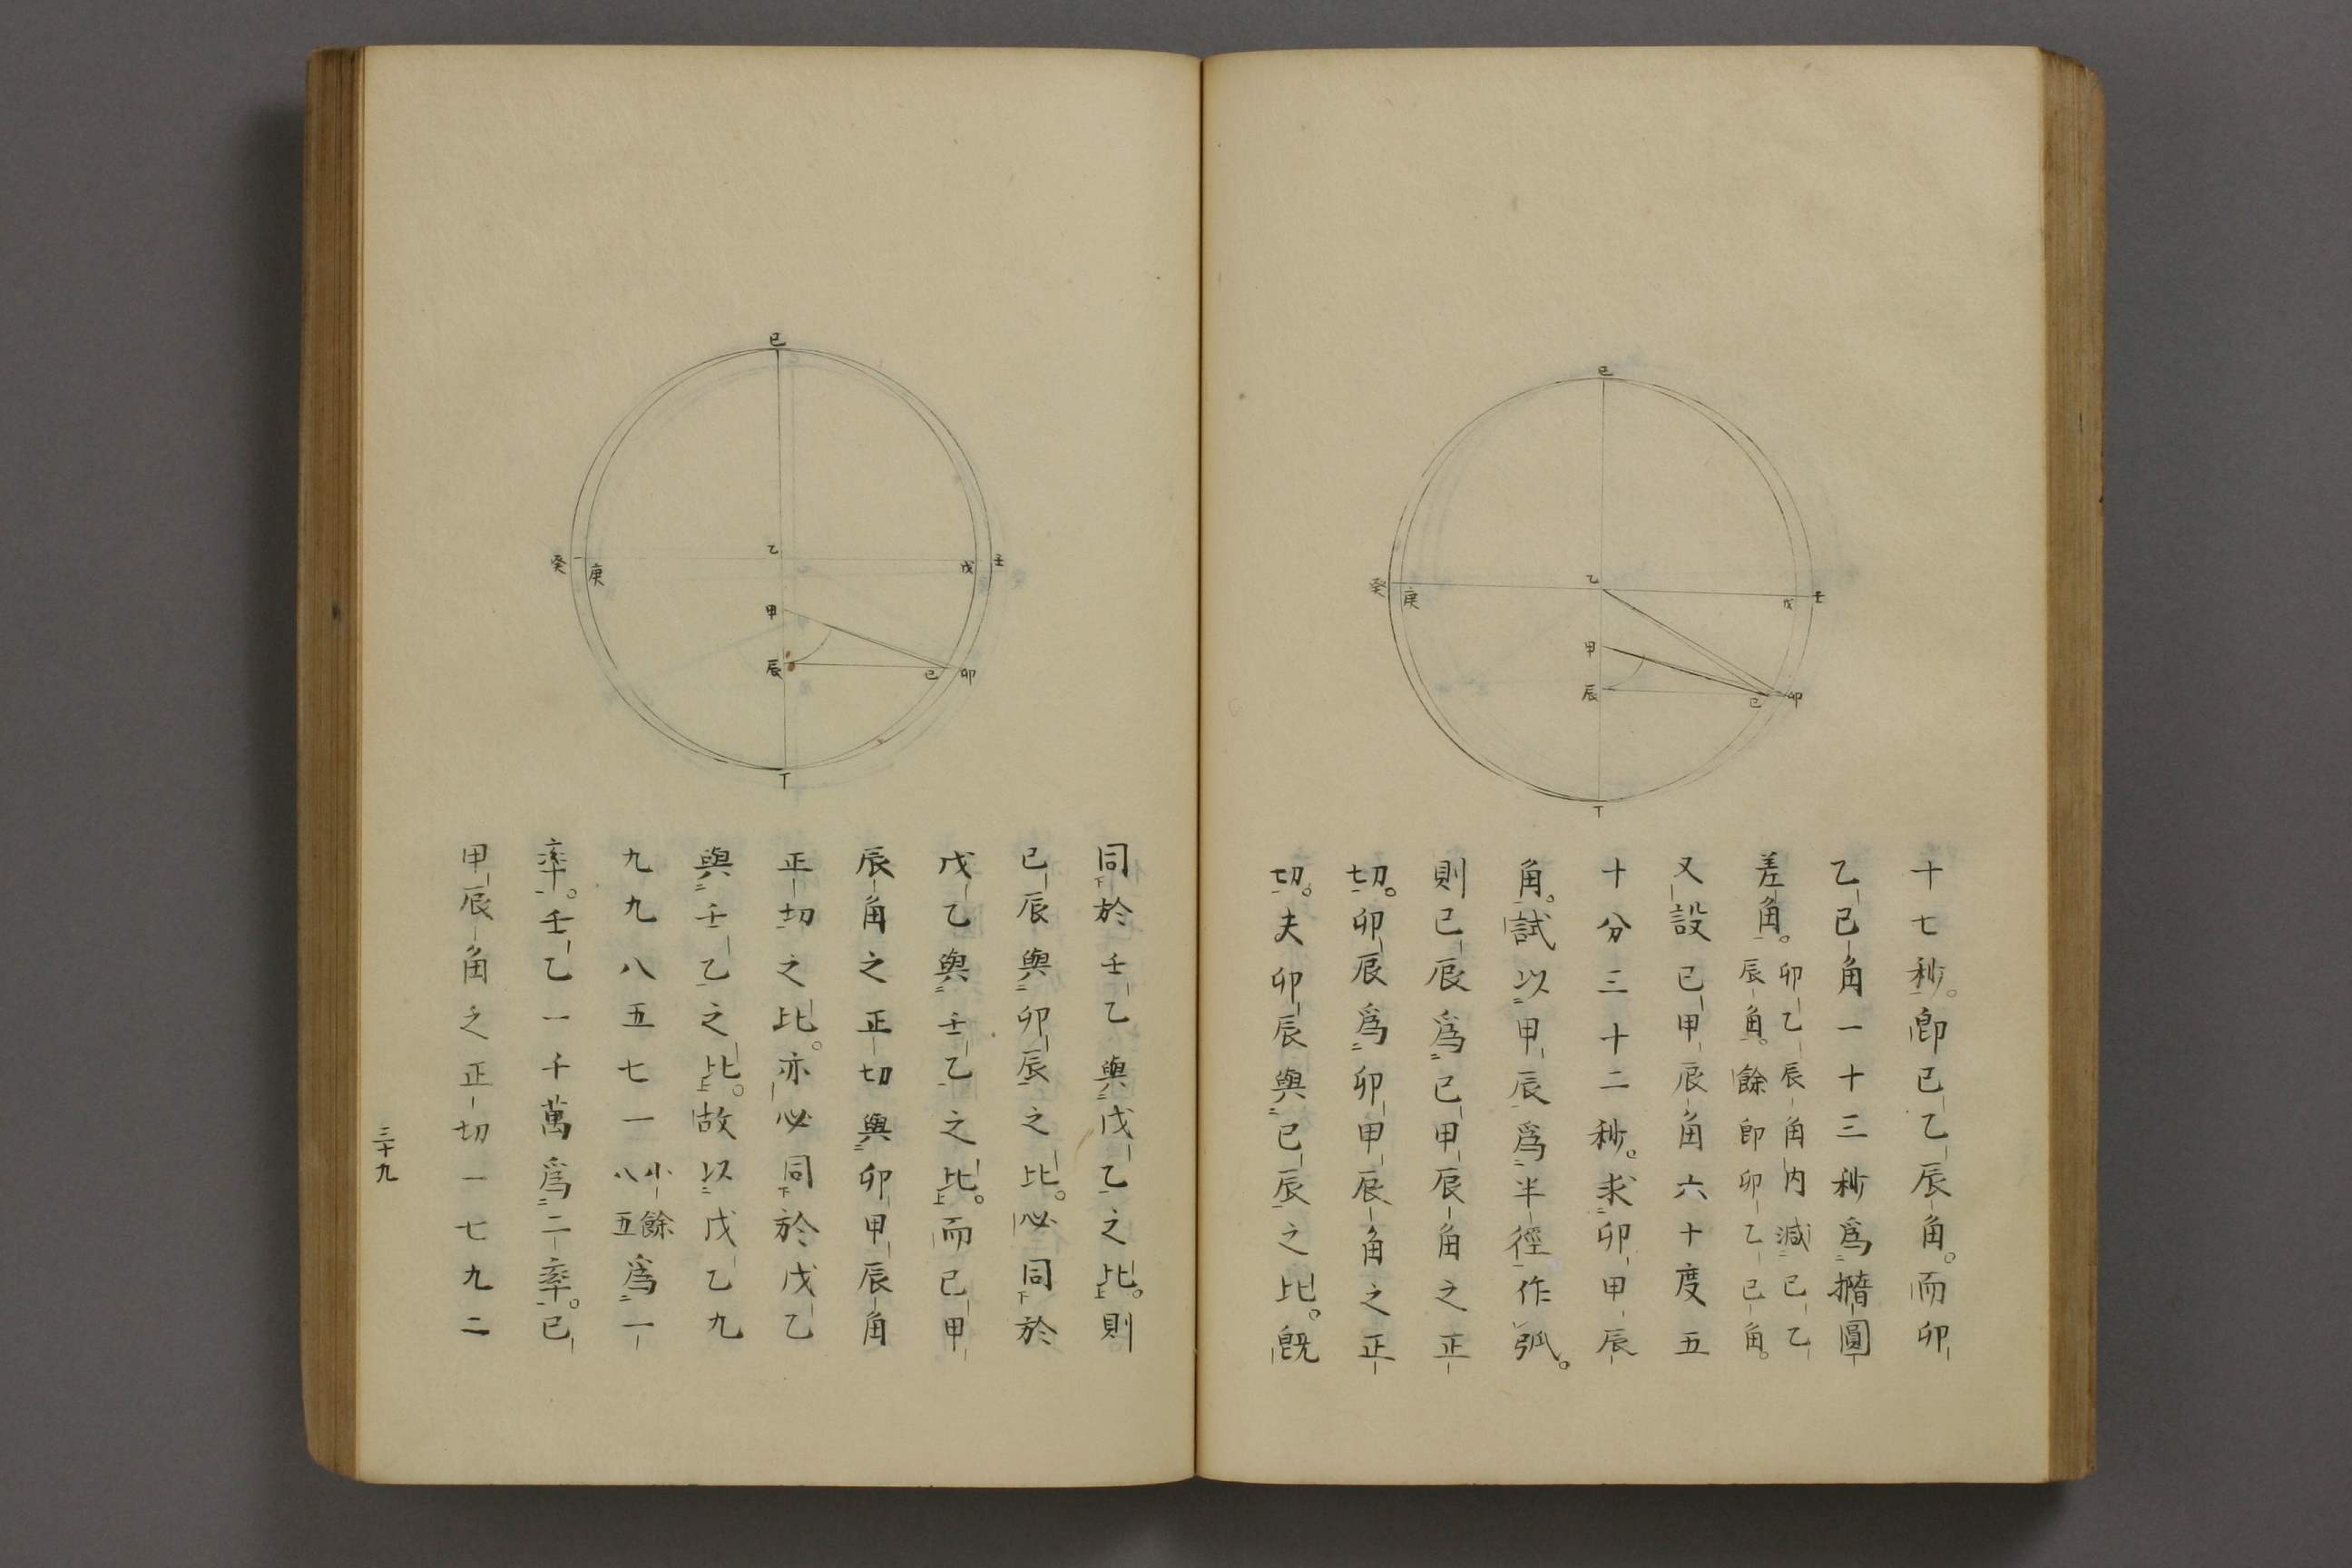 十七秒。卽巳乙辰角。而卯
乙巳角一十三秒爲撱圓
差角。卯乙辰角内減巳乙
辰角。餘卽卯乙巳角。
又設巳甲辰角六十度五
十分三十二秒。求卯甲辰
角。試以甲辰爲半徑作弧。
則巳辰爲巳甲辰角之正
切。卯辰爲卯甲辰角之正
切。夫卯辰與巳辰之比。旣
巳
乙
甲
辰
丁
癸
庚
戊
壬
巳
卯
同於壬乙與戊乙之比。則
巳辰與卯辰之比。必同於
戊乙與壬乙之比。而巳甲
辰角之正切與卯甲辰角
正切之比。亦必同於戊乙
與壬乙之比。故以戊乙九
九九八五七一小餘八五爲一
率。壬乙一千萬爲二率。巳
甲辰角之正切一七九二
巳
乙
甲
辰
丁
癸
庚
戊
壬
巳
卯
三十九